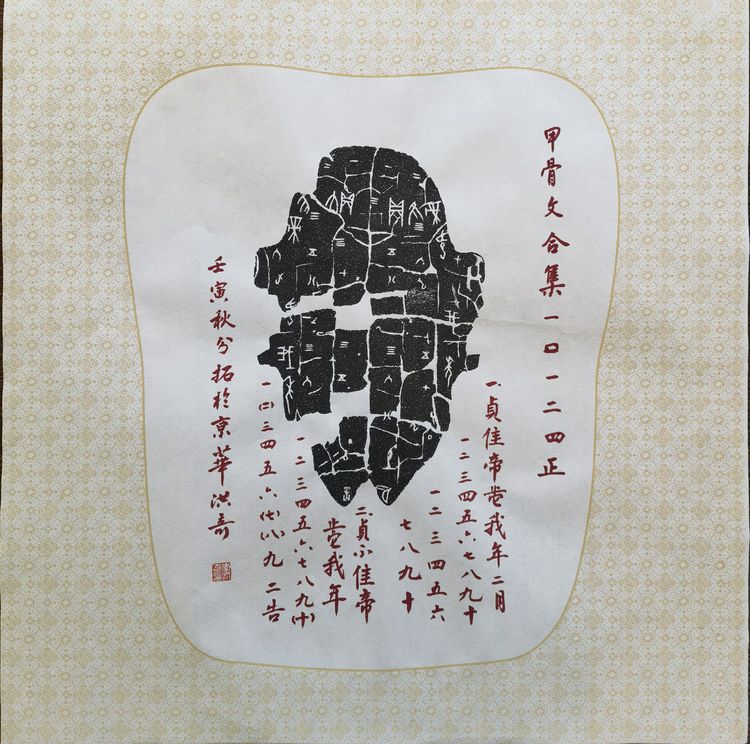 甲骨文合集一〇一二四正
一.貞隹帝我年二月
一二三四五六七八九十
一二三四五六
七八九十
二.貞不隹帝
我年
一二三四五六七八九(十)
一(二)三四五六(七)(八)九 二告
壬寅秋分拓於京華洪奇